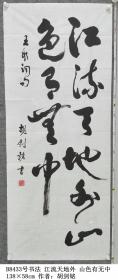 江流天地外山
色有无中
王维词句
胡剑铭书
B8433号书法 江流天地外 山色有无中
138×58cm 作者：胡剑铭